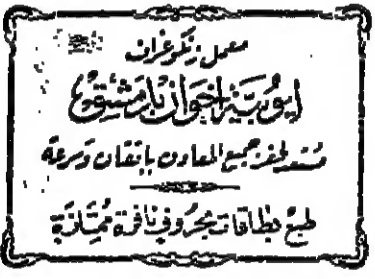 معمل زنكوغراف
أيوبية إخوان بدمشق
مستعد لحفر جميع المعادن بإتقان وسرعة
طبع بطاقات بحروف نافرة ممتازة